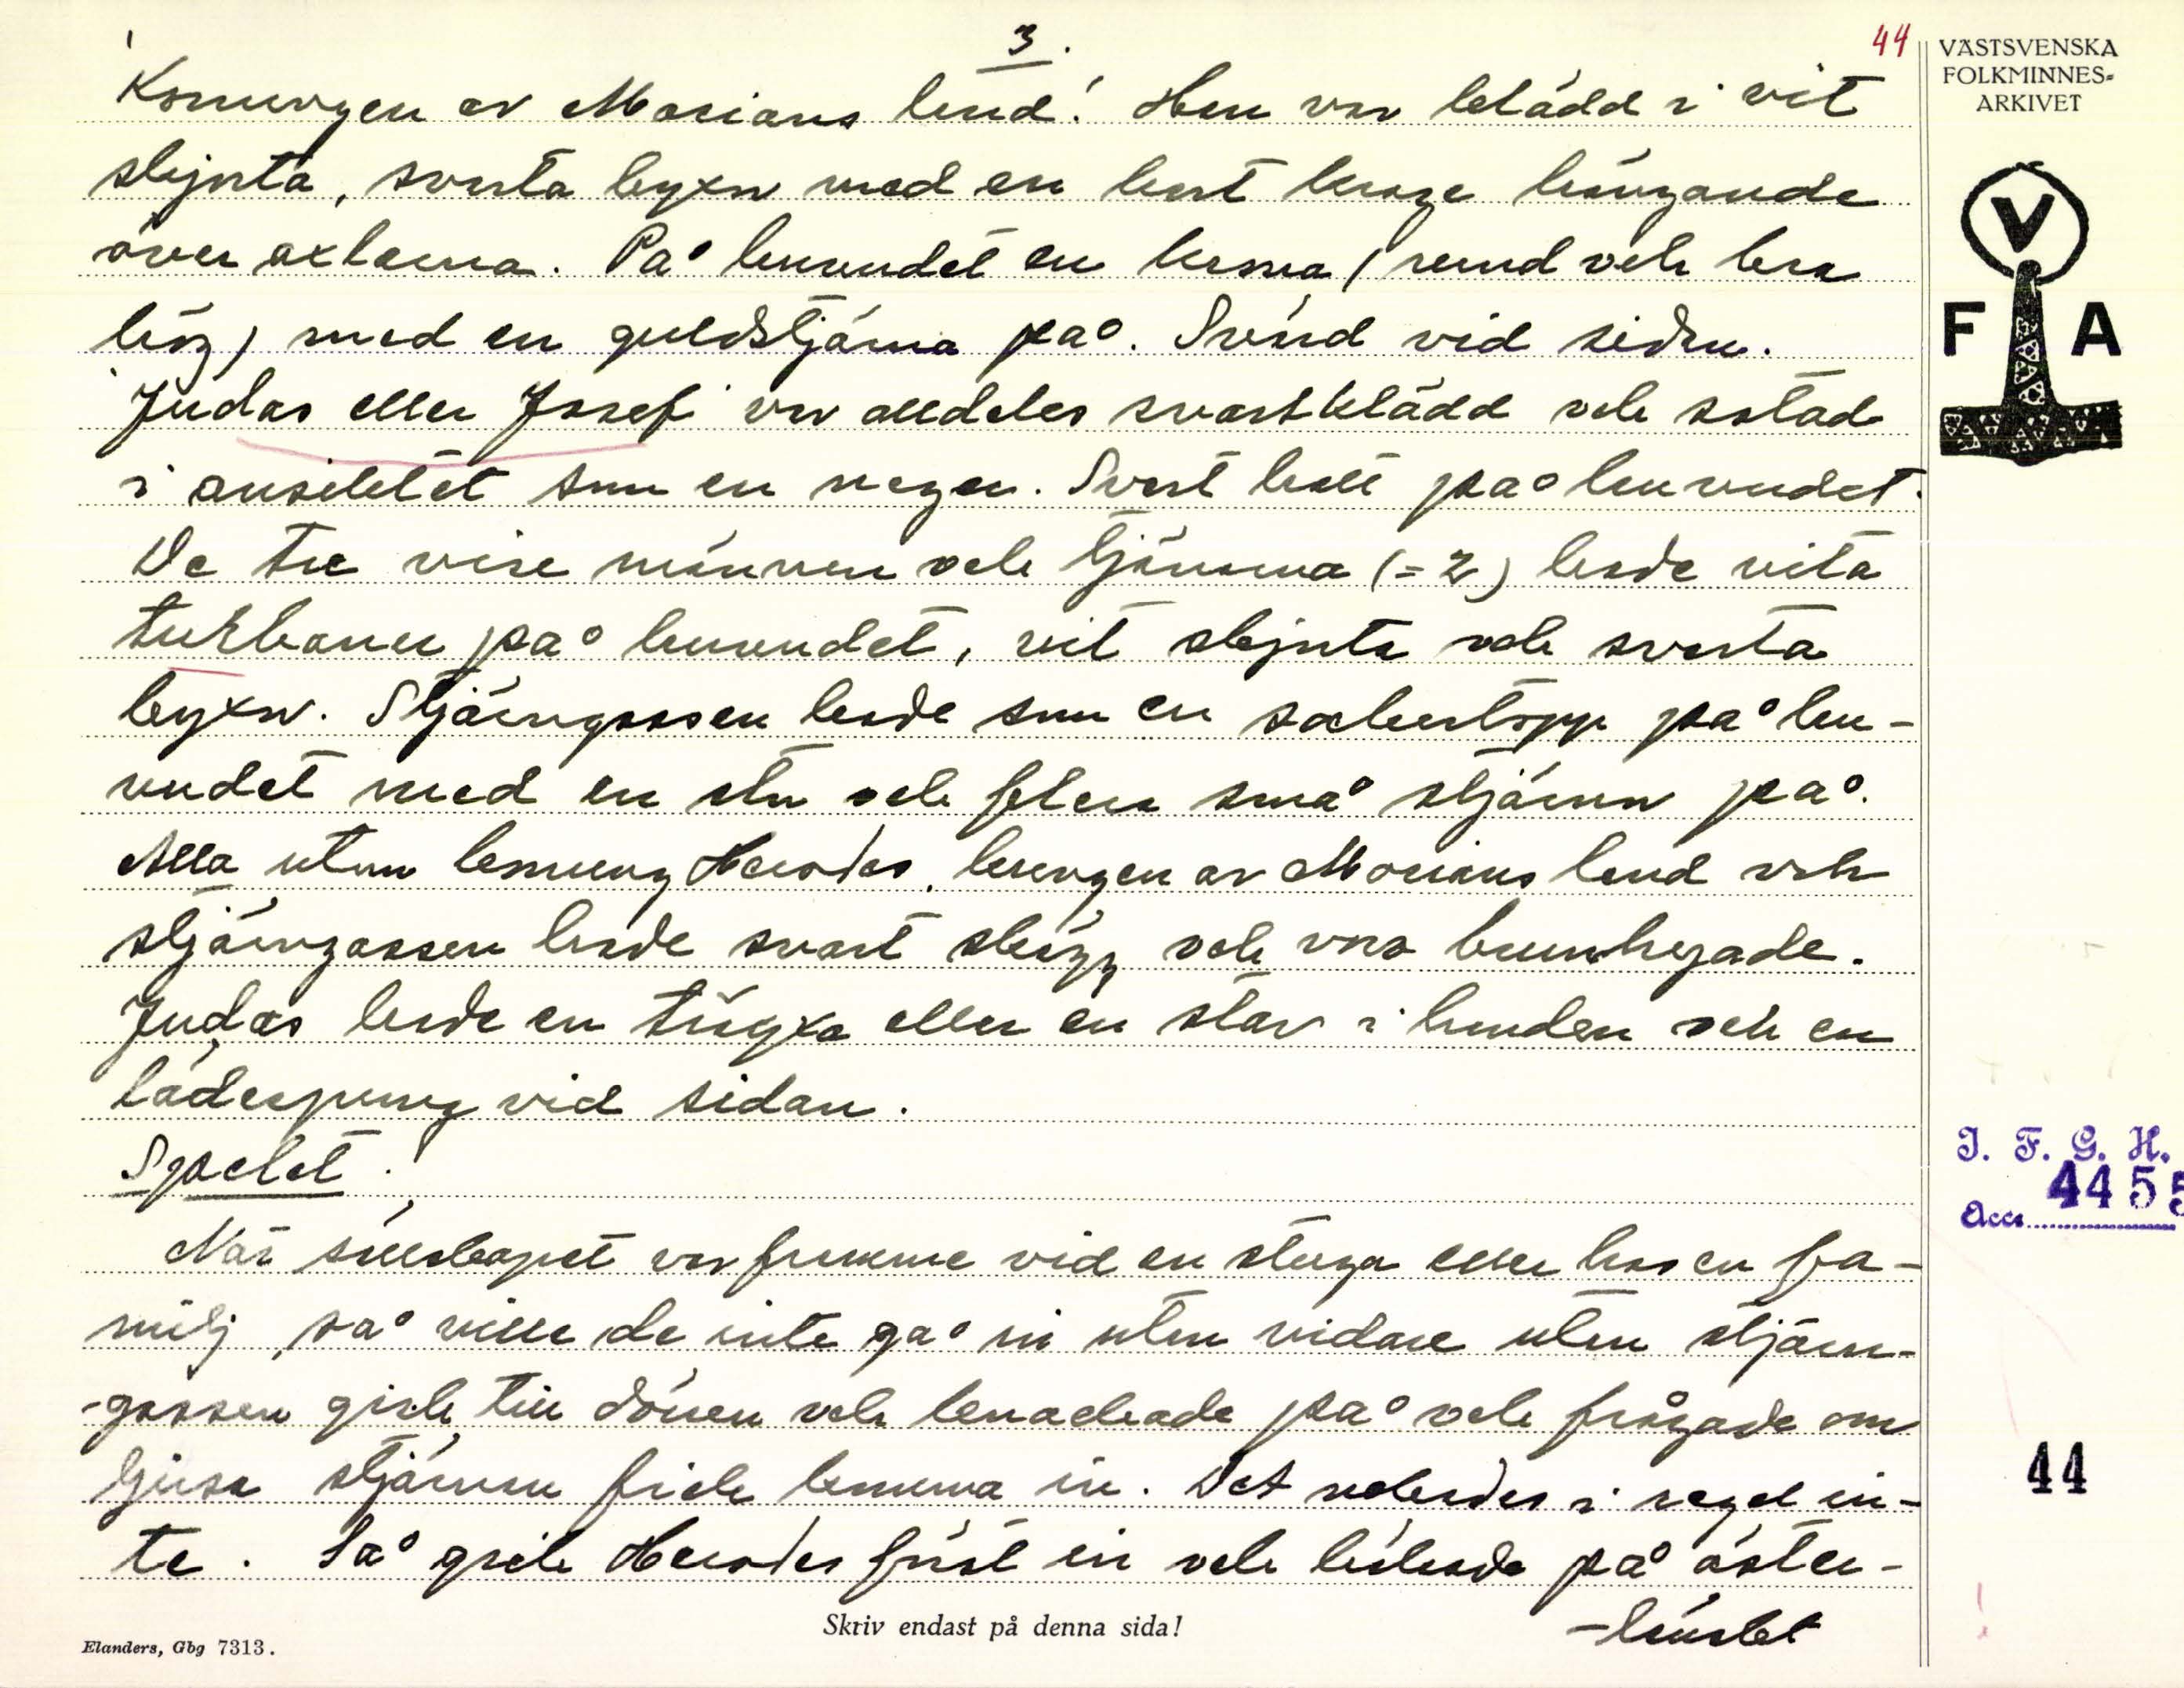 3.
44
'Konungen av Morians land'. Han var klädd i vit
skjorta, svarta byxor med en kort krage hängande
över axlarna. På huvudet en krona (rund och bra
hög) med en guldstjärna på. Svärd vid sidan.
'Judas eller Josef' var alldeles svartklädd och sotad
i ansiktet som en neger. Svart hatt på huvudet.
De tre vise männen och tjänarna (=2) hade vita
turbaner på huvudet, vit skjorta och svarta
byxor. Stjärngossen hade som en sockertopp på hu-
vudet med en stor och flera små stjärnor på.
Alla utom konung Herodes, kungen av Morians land och
stjärngossen hade svart skägg och voro beväpnade.
Judas hade en träyxa eller en stav i handen och en
läderpung vid sidan.
Spelet.
När sällskapet var framme vid en stuga eller hos en fa-
milj, så ville de inte gå in utan vidare utan stjärn-
-gossen gick till dörren och knackade på och frågade om
ljusa stjärnan fick komma in. Det nekades i regel in-
te. Så gick Herodes först in och hälsade på öster-
-ländskt
Skriv endast på denna sida!
Elanders, Gbg 7313.
VÄSTSVENSKA
FOLKMINNES-
ARKIVET
V
F A
I. F. G. H.
4455
Acc.
44